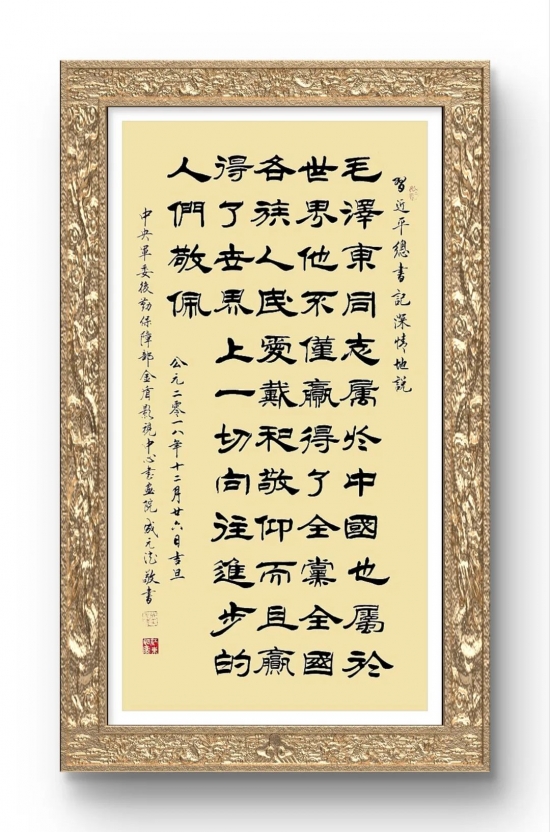 習近平總書記深情地説
毛澤東同志属於中國也屬於
世界他不僅贏得了全黨全國
各族人民愛戴和敬仰而且贏
得了世界上一切向往進步的
人們敬佩
公元二零一八年十二月廿六日吉旦
中央軍委後勤保障部金盾影視中心書畫院成元敬書